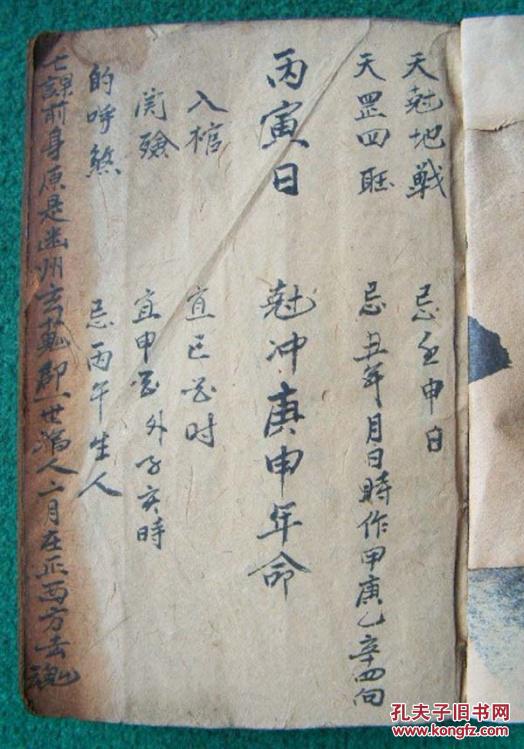 天尅地戰 忌壬申日
天罡四旺 忌丑年月日時作甲庚乙辛四向
丙寅日 尅冲庚申年命
入棺 宜巳酉时
宜申酉外子亥時
的呼煞 忌丙午生人
七課前身原是幽州 郡 世 人六月在正西方去
孔夫子旧书网
www.kongfz.com